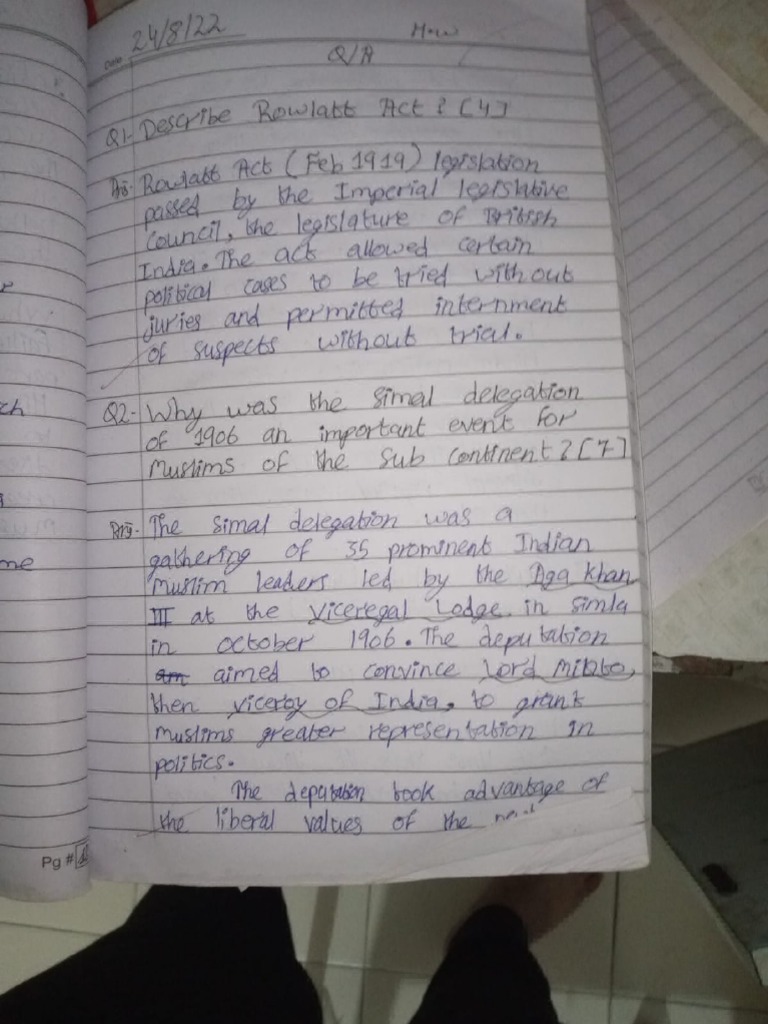 24/8/22
H.W
Date:
Q/A
Q1- Describe Rowlatt Act? [4]
Ans- Rowlatt Act (Feb 1919) legislation
passed by the Imperial legislative
Council, the legislature of British
India. The act allowed certain
political cases to be tried without
juries and permitted internment
of suspects without trial.
Q2- Why was the simal delegation
of 1906 an important event for
Muslims of the Sub continent? [7]
Ans- The simal delegation was a
gathering of 35 prominent Indian
Muslim leaders led by the Aga Khan
III at the viceregal Lodge in Simla
in october 1906. The deputation
am aimed to convince Lord Minto,
then viceroy of India, to grant
Muslims greater representation in
politics.
The deputation took advantage of
the liberal values of the
ch
me
Pg #